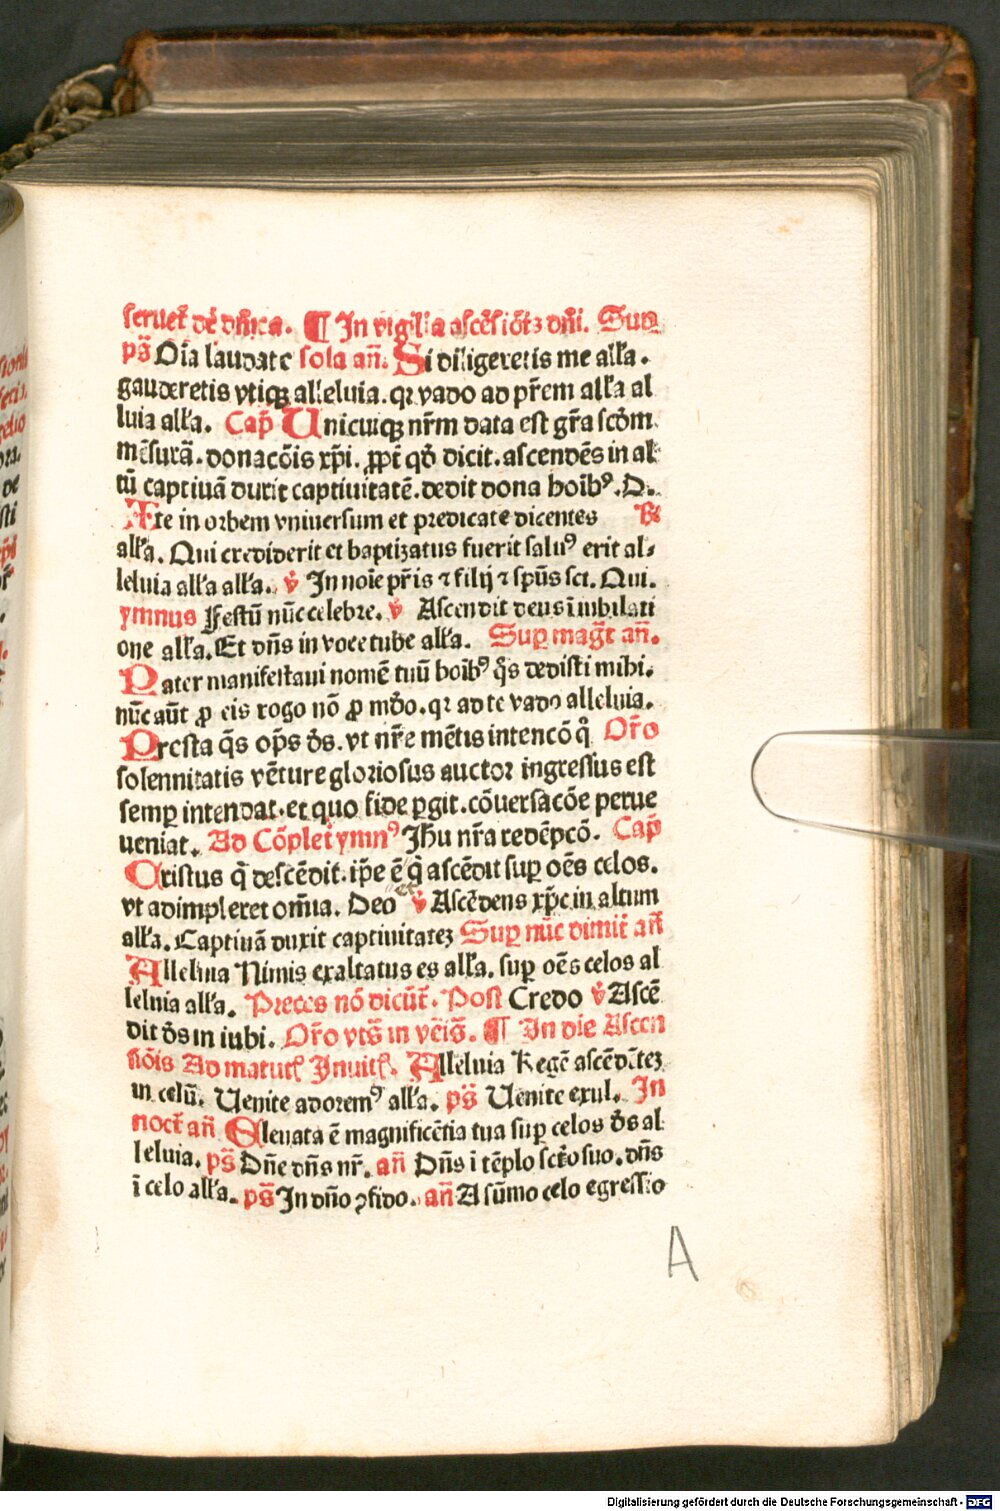 seruet̃ dẽ dñica. ¶ In vigilia ascẽsiõis dñi. Sup̱
pš Oĩa laudate sola añ. Si diligeretis me all'a.
gauderetis vtiqꝫ alleluia. qꝛ vado ad pr̃em all'a al
luia all'a. Cap̃ Unicuiqꝫ nr̃m data est gr̃a scd̃m
mẽsurã. donacõis xp̃i. ꝓpt̃ qd̃ dicit. ascendẽs in al
tũ captiuã duxit captiuitatẽ. dedit dona hoĩbꝰ. D.
Ite in orbem vniuersum et predicate dicentes ℟
all'a. Qui crediderit et baptizatus fuerit saluꝰ erit al⸗
leluia all'a all'a. ℣ In noĩe pr̃is ⁊ filij ⁊ sp̃us sc̃i. Qui.
ymnus Festũ nũc celebre. ℣ Ascendit deus ĩ iubilati
one all'a. Et dñs in voce tube all'a. Sup̱ mag̃t añ.
Pater manifestaui nomẽ tuũ hoĩbꝰ q̃s dedisti mihi.
nũc aũt ꝓ eis rogo nõ ꝓ mũdo. qꝛ ad te vado alleluia.
Presta q̃s op̃s d̃s. vt nr̃e mẽtis intencõ q̊ Or̃o
solennitatis vẽture gloriosus auctor ingressus est
semp̱ intendat. et quo fide p̱git. cõuersacõe perue
ueniat. Ad Cõplet ymnꝰ Jh̃u nr̃a redẽpcõ. Cap̃
Cristus q̃ descẽdit. ip̃e ẽ q̃ ascẽdit sup̱ oẽs celos.
et
vt adimpleret om̃ia. Deo ℣ Ascẽdens xp̃c in altum
all'a. Captiuã duxit captiuitatẽ Sup̱ nũc dimit̃ añ
Alleluia Nimis exaltatus es all'a. sup̱ oẽs celos al
leluia all'a. Preces nõ dicũt̃. Post Credo ℣ Ascẽ
dit d̃s in iubi. Or̃o vts̃ in vẽis̃. ¶ In die Ascen
siõis Ad matut̃ Inuit̃. Alleluia Regẽ ascẽdẽtẽ
in celũ. Uenite adoremꝰ all'a. pš Uenite exul. In
noct̃ añ Eleuata ẽ magnificẽtia tua sup̱ celos d̃s al
leluia. pš Dñe dñs nr̃. añ Dñs ĩ tẽplo sct̃o suo. dñs
ĩ celo all'a. pš In dño ꝯfido. añ A sũmo celo egressio
A
Digitalisierung gefördert durch die Deutsche Forschungsgemeinschaft - DFG